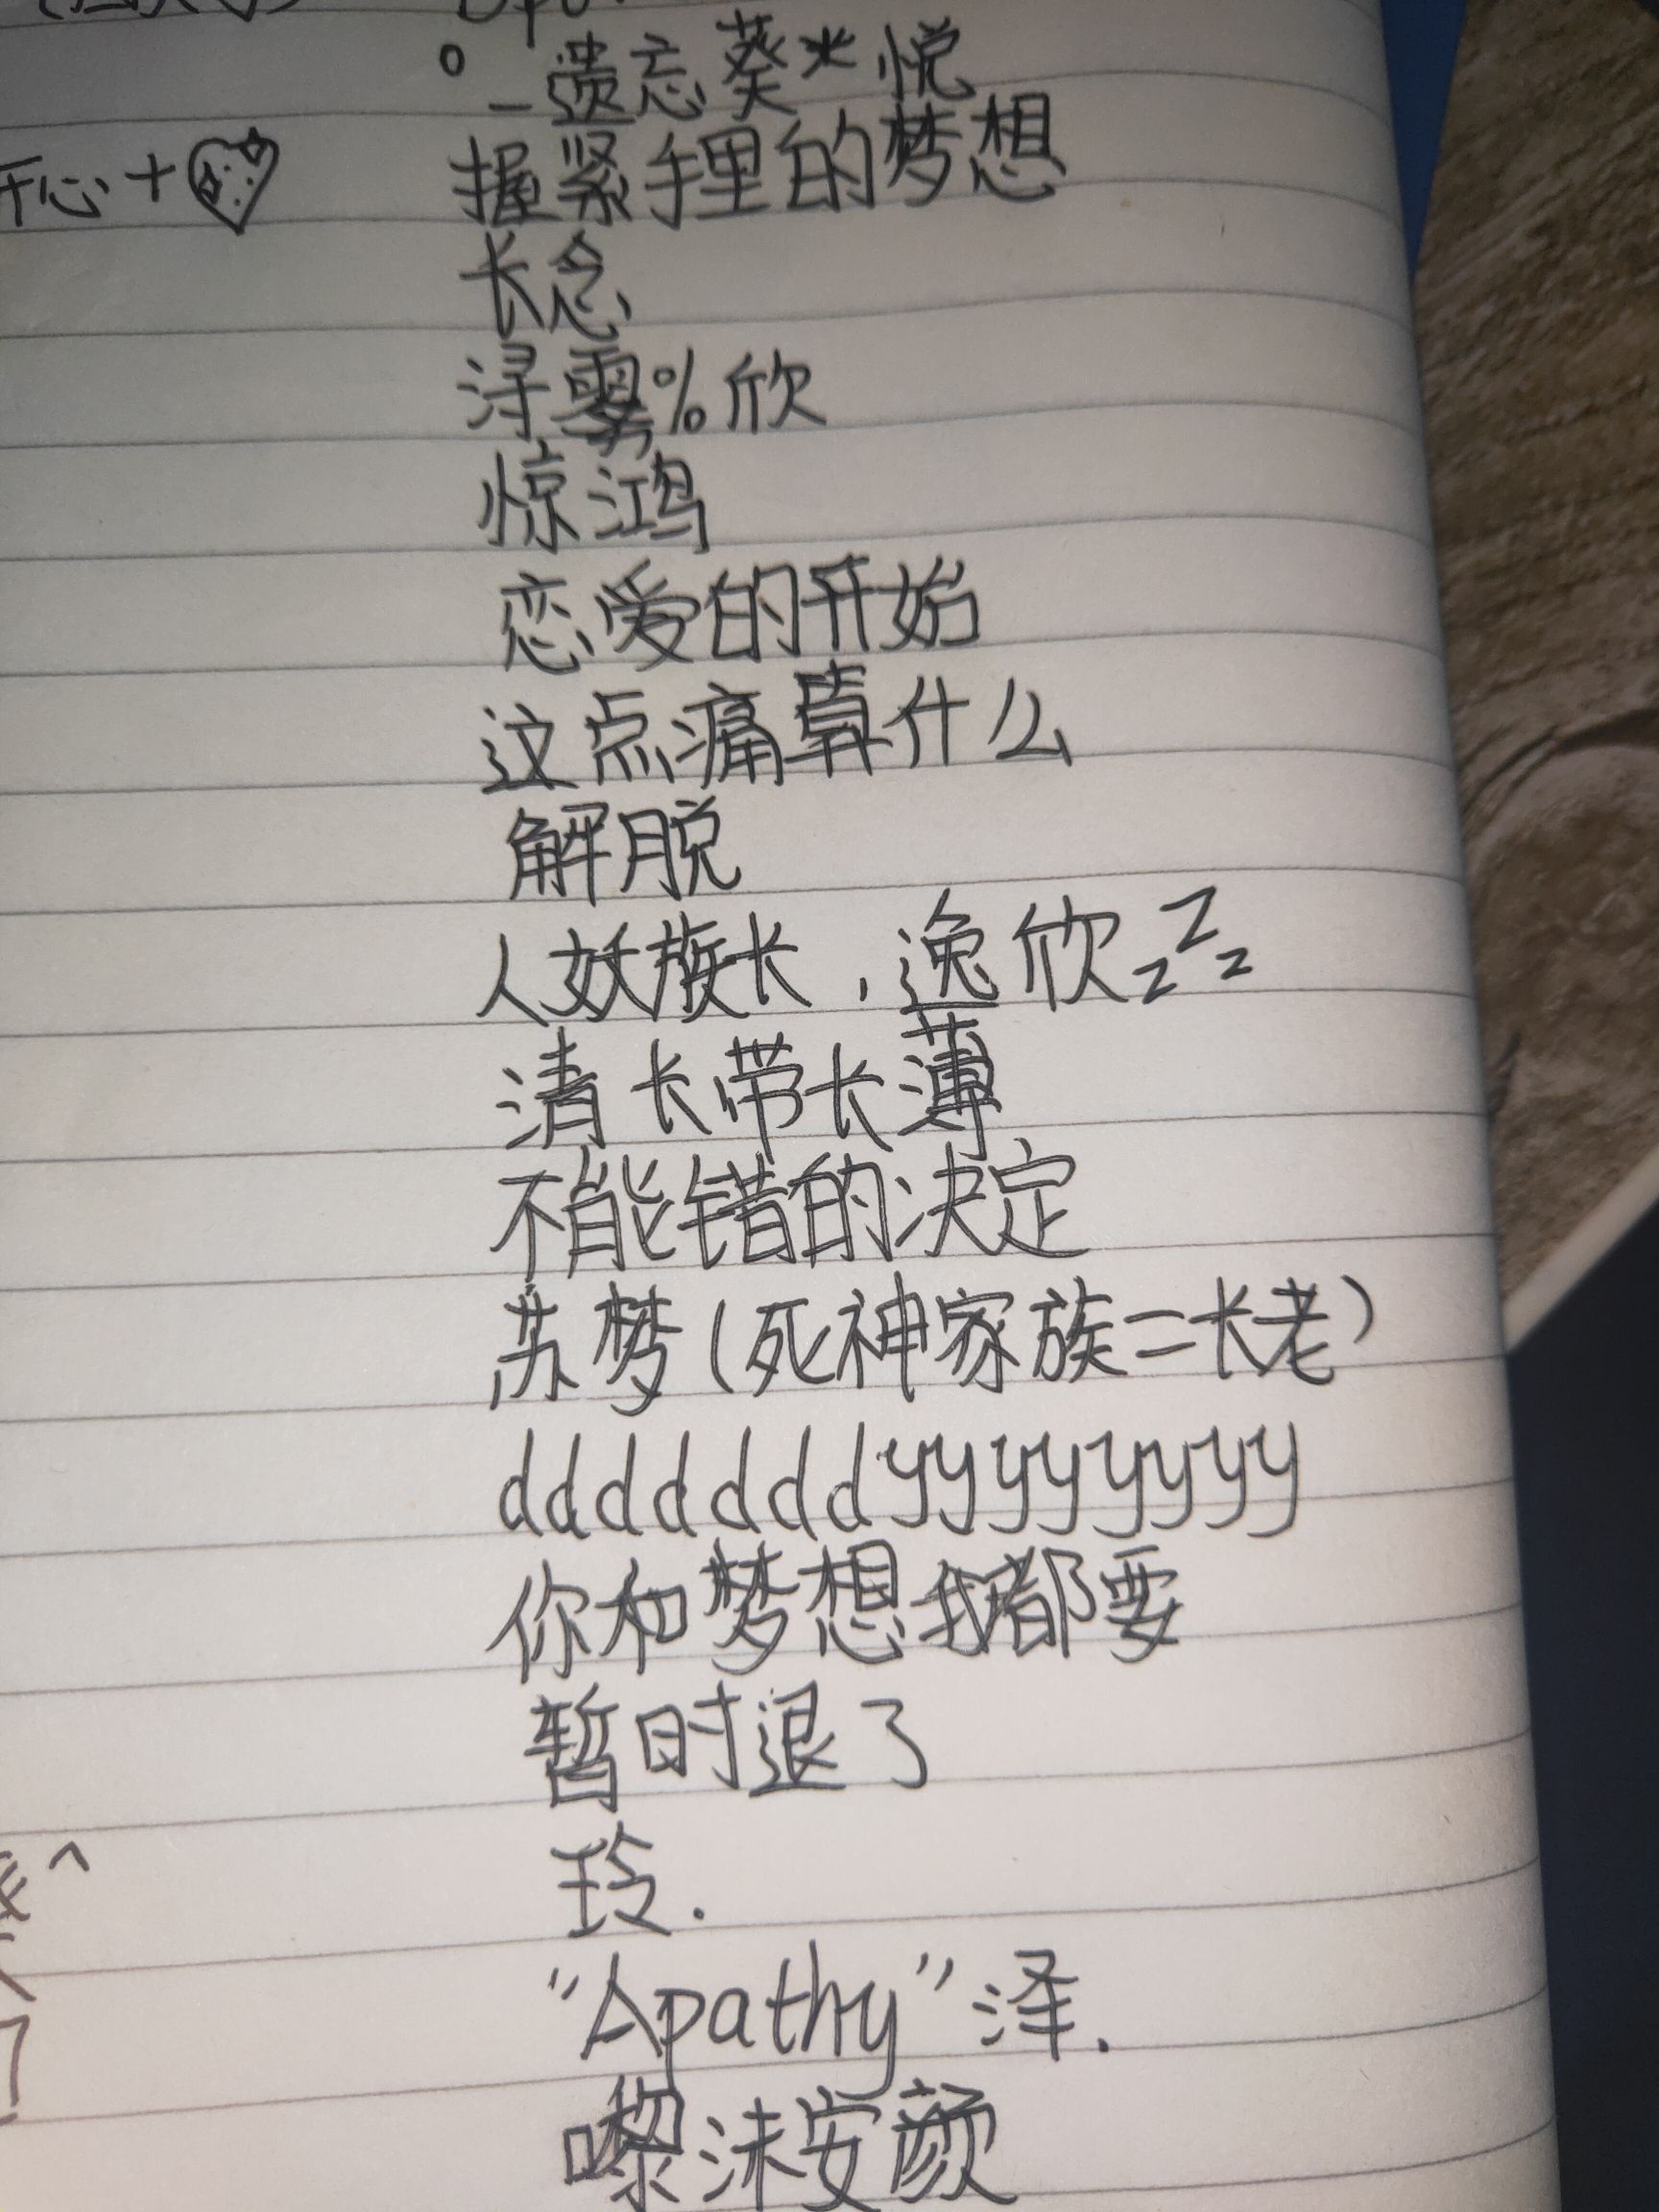 。_遗忘葵*悦
开心+
握紧手里的梦想
长念
浔雾%欣
惊鸿
恋爱的开始
这点痛算什么
解脱
人妖族长.逸欣zZz
清长带长薄
不能错的决定
苏梦(死神家族二长老)
dddddddyyyyyyyy
你和梦想我都要
暂时退了
玲.
"Apathy"泽.
嚟沫安颜